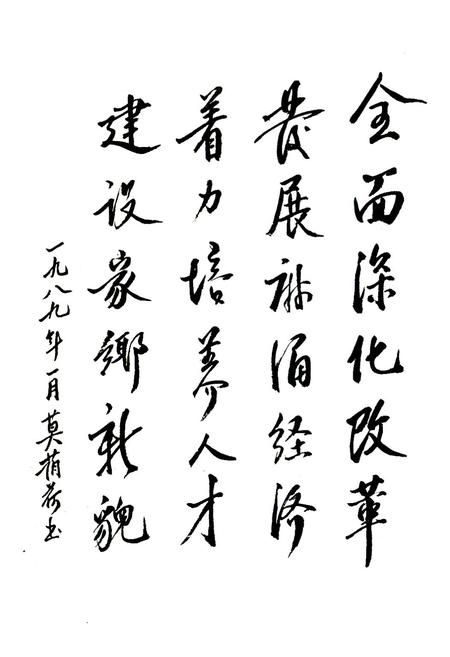 全面深化改革
發展硇涌经济
着力培养人才
建设家鄉新貌
一九八九年一月莫植荷书